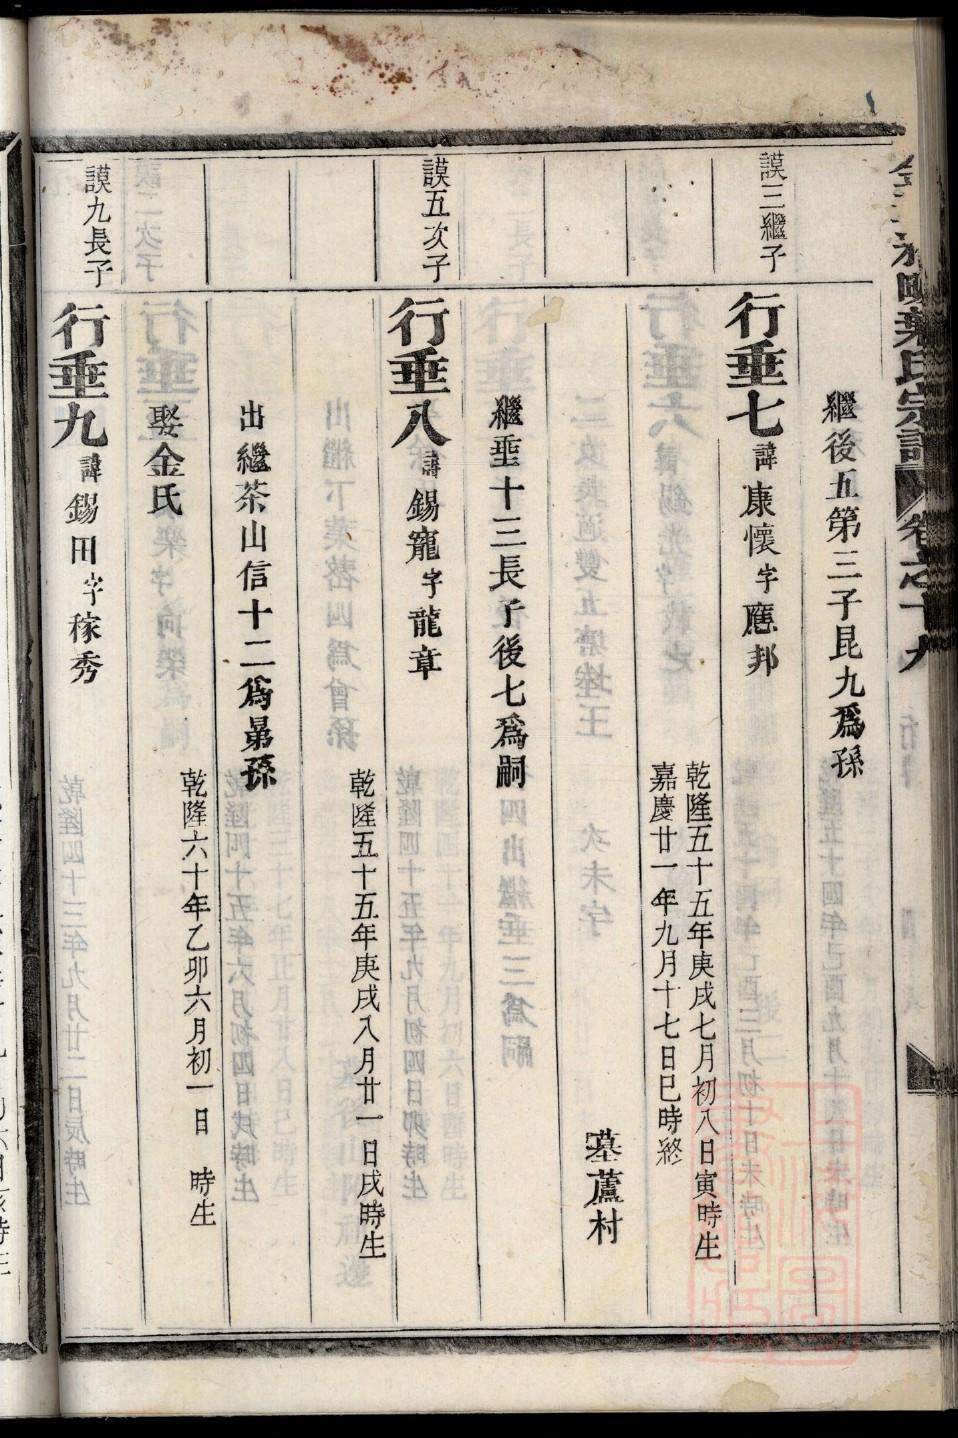 葉氏宗譜
卷之十九
繼後五第三子昆九爲孫
謨三繼子
行垂七諱康懷字應邦
乾隆五十五年庚戌七月初八日寅時生
嘉慶廿一年九月十七日巳時終
墓蘆村
繼垂十三長子後七爲嗣
謨五次子
行垂八諱錫寵字龍章
乾隆五十五年庚戌八月廿一日戌時生
出繼茶山信十二爲曾孫
娶金氏
乾隆六十年乙卯六月初一日 時生
謨九長子
行垂九諱錫田字稼秀